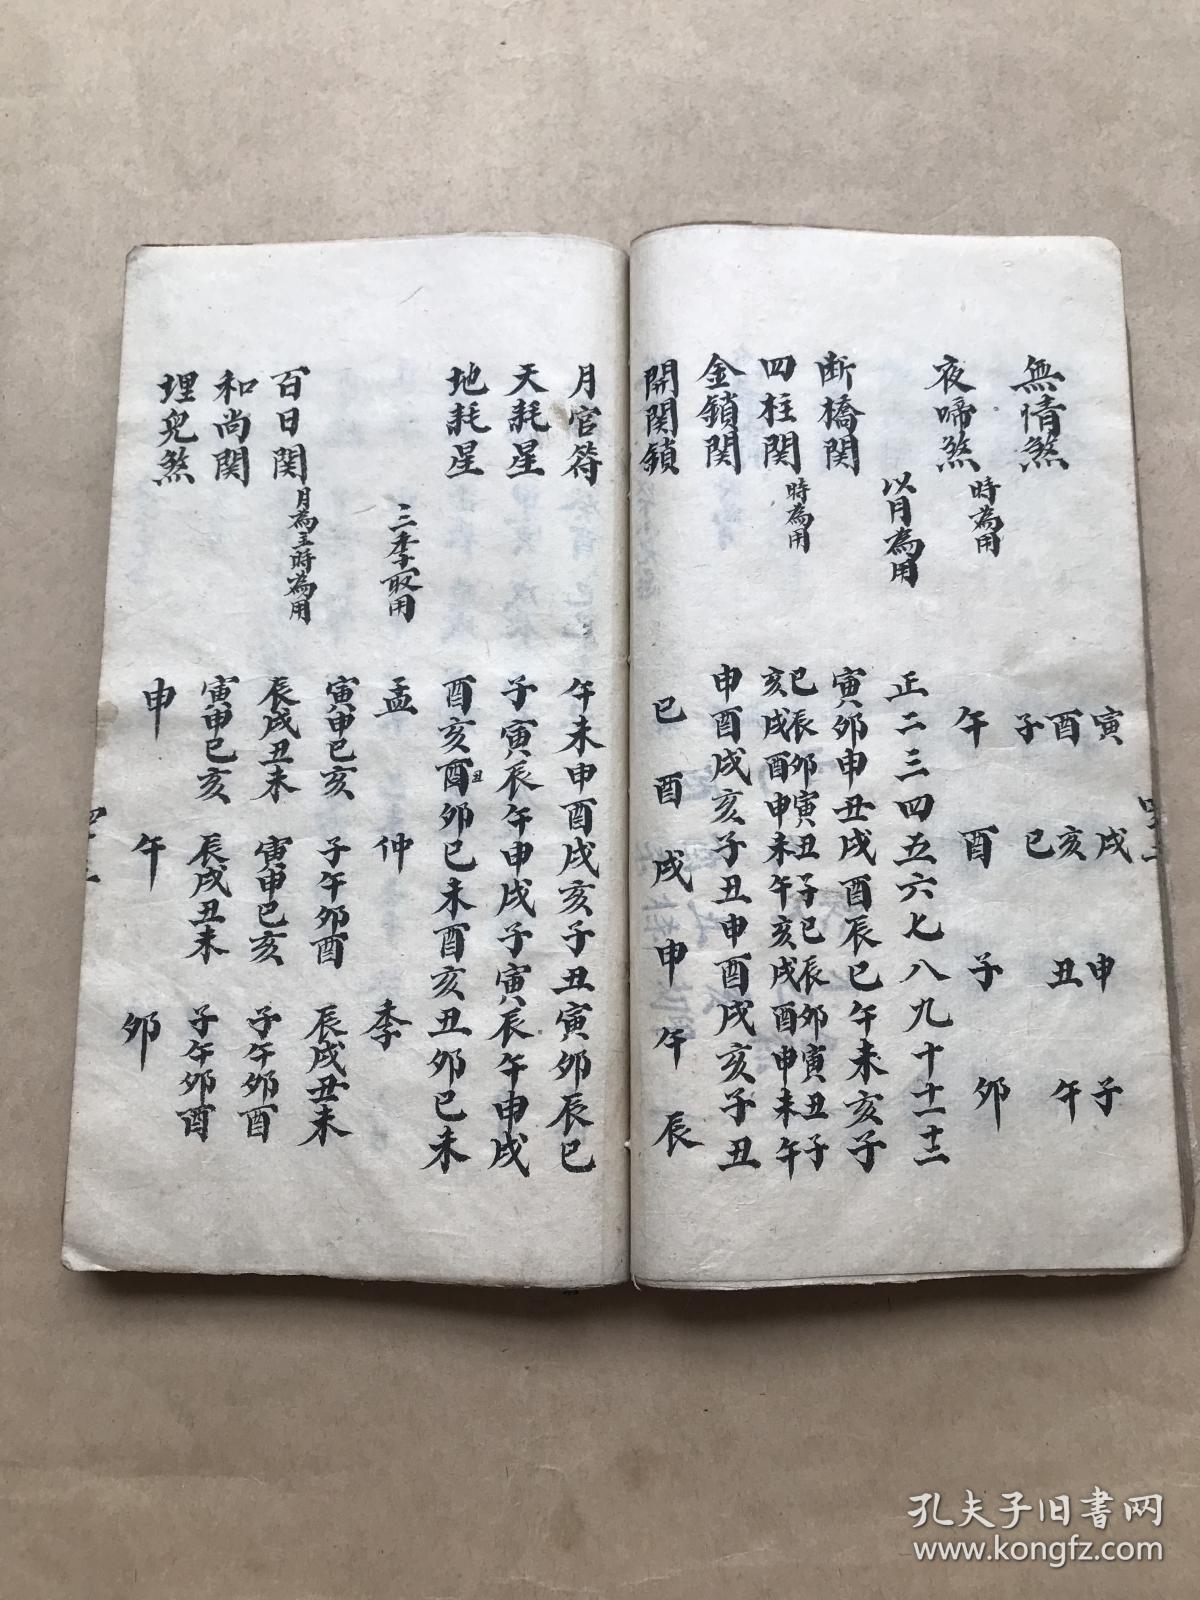 寅 戌 申 子
無情煞 酉亥 丑 午
子 巳
夜啼煞 時為用 午 酉 子 卯
以月為用 正二三四五六七八九十十一十二
断橋関 寅卯申丑戌酉辰巳午未亥子
四柱関 時為用 巳辰卯寅丑子巳辰卯寅丑子
亥戌酉申未午亥戌酉申未午
金鎖関 申酉戌亥子丑申酉戌亥子丑
開関鎖 巳 酉 戌 申 午 辰
月官符 午未申酉戌亥子丑寅卯辰巳
天耗星 子寅辰午申戌子寅辰午申戌
地耗星 酉亥酉丑卯巳未酉亥丑卯巳未
三季取用 孟 仲 季
寅申巳亥 子午卯酉 辰戌丑未
百日関 月為主時為用 辰戌丑未 寅申巳亥 子午卯酉
和尚関 寅申巳亥 辰戌丑未 子午卯酉
埋兒煞 申 午 卯
孔夫子旧书网
www.kongfz.com